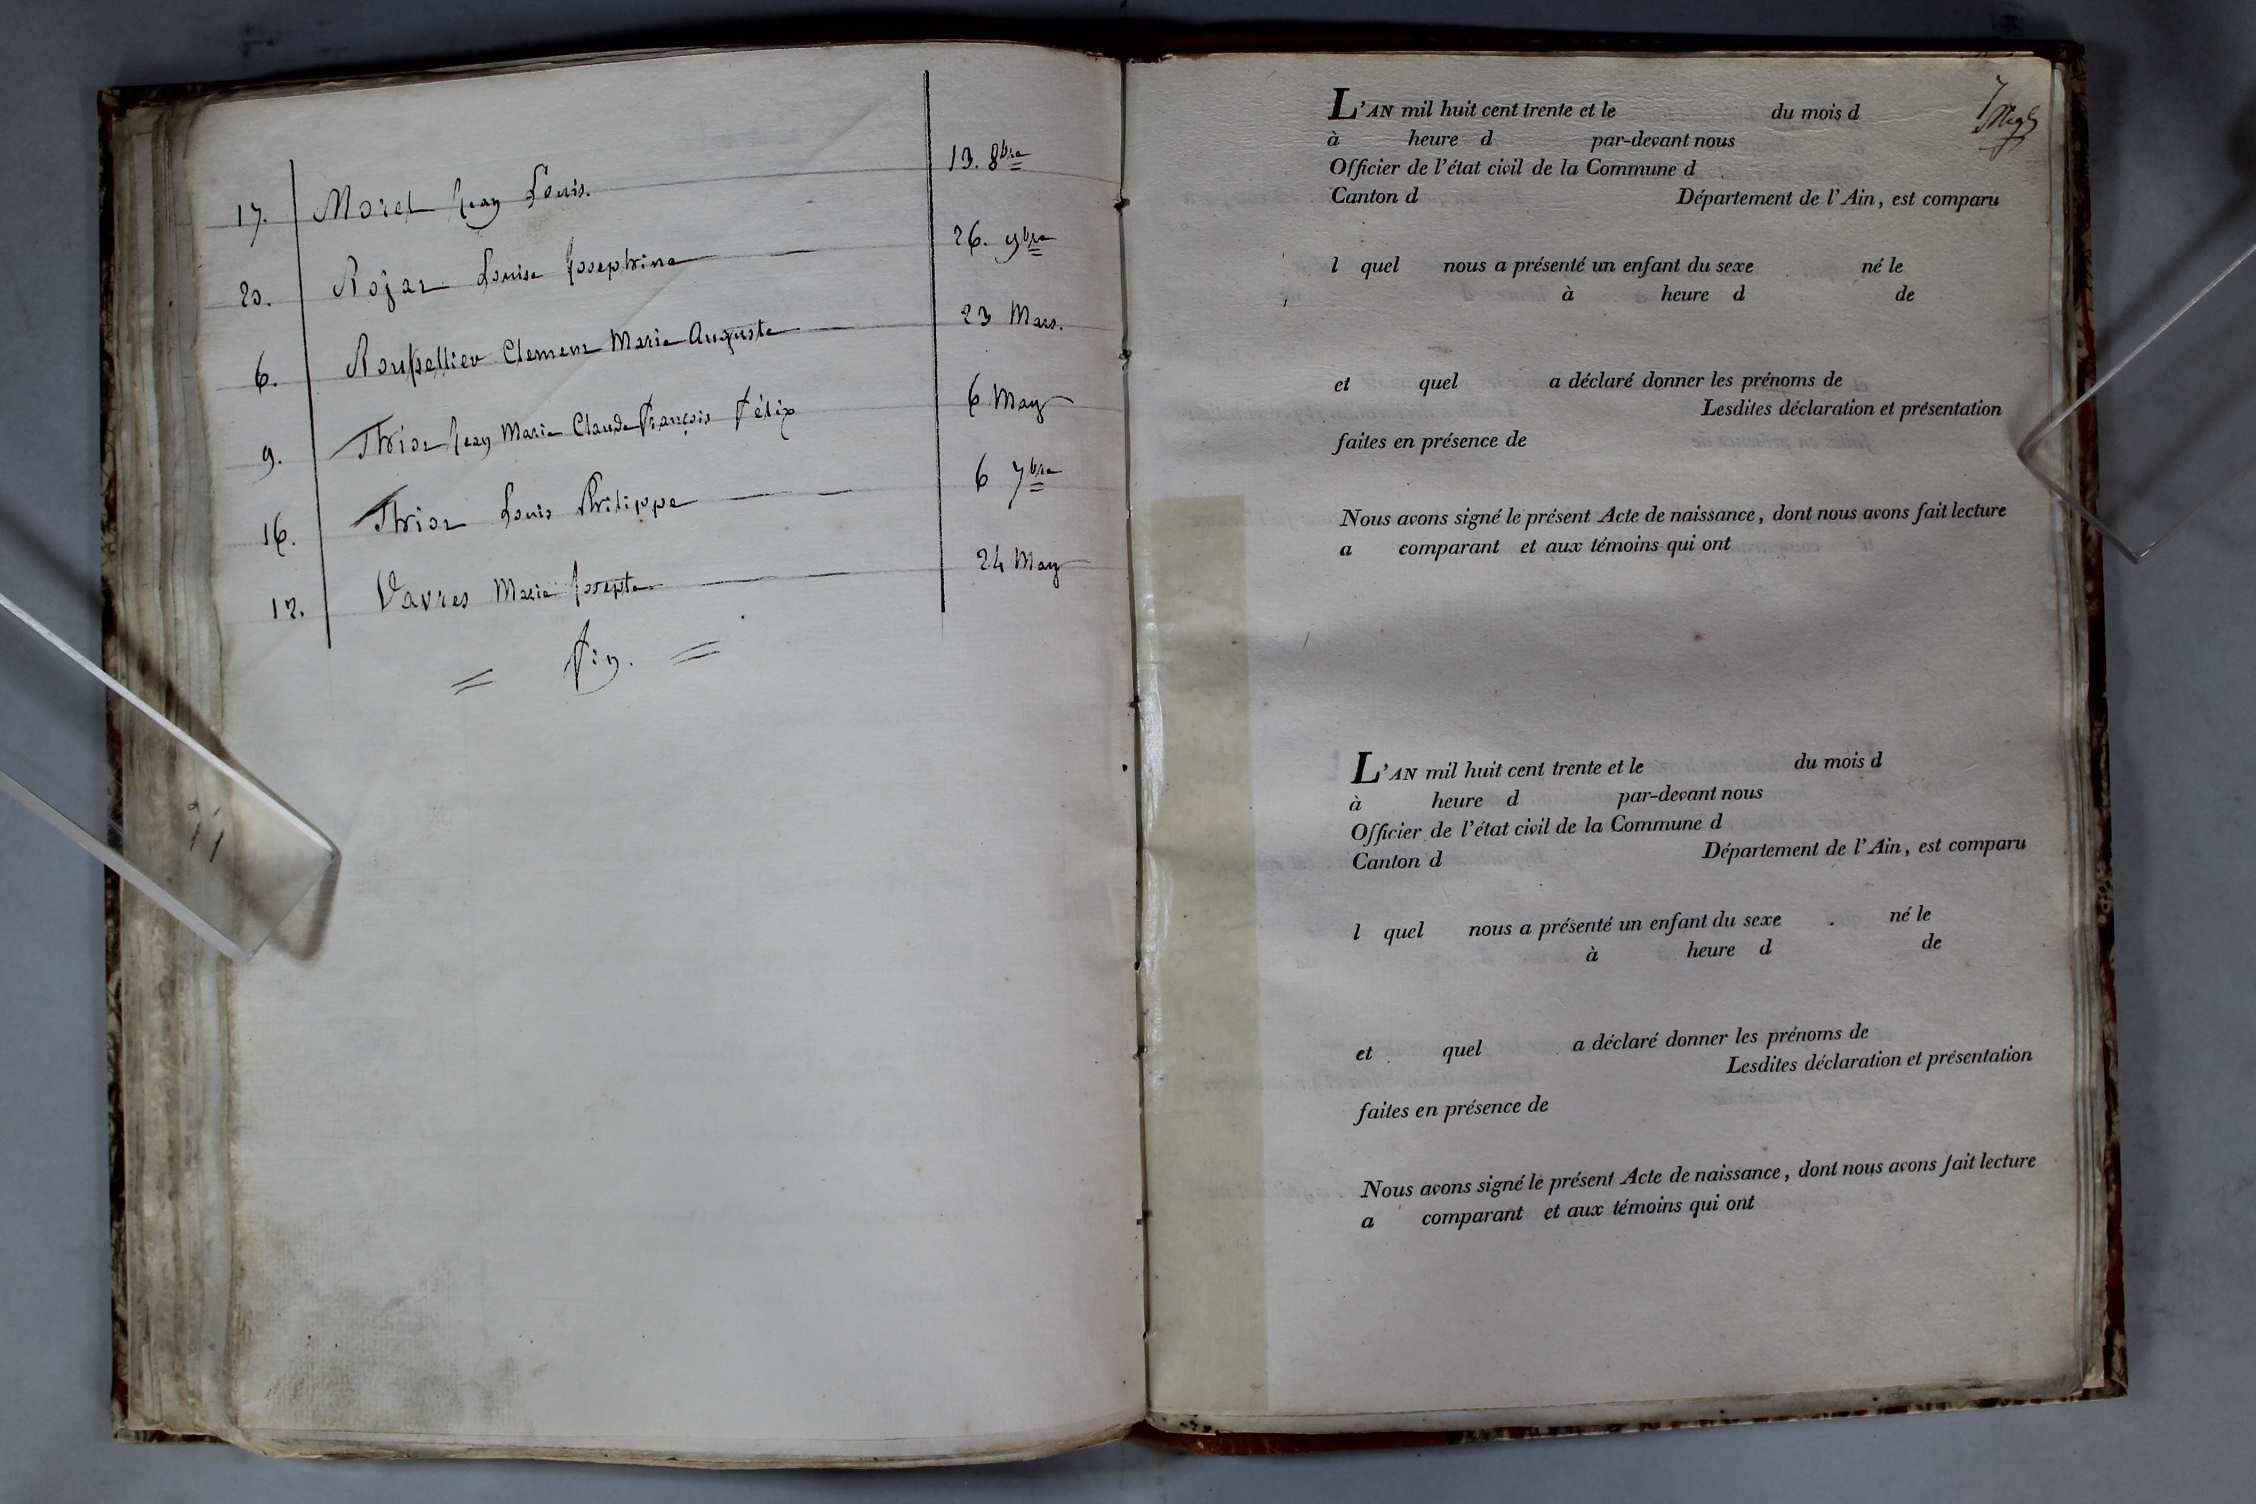 17. Morel Jean Louis. 13. 8bre
20. Rojat Louise Josephine 26. 9bre
6. Roupellier Clement Marie Auguste 23 Mars.
9. Jean Marie Claude François Félix 6 May
16. Louis Philippe 6 7bre
12. Vavres Marie Josepte 24 May
= Fin. =
7
L'AN mil huit cent trente et le du mois d
à heure d par-devant nous
Officier de l'état civil de la Commune d
Canton d Département de l'Ain, est comparu
l quel nous a présenté un enfant du sexe né le
à heure d de
et quel a déclaré donner les prénoms de
Lesdites déclaration et présentation
faites en présence de
Nous avons signé le présent Acte de naissance, dont nous avons fait lecture
a comparant et aux témoins qui ont
L'AN mil huit cent trente et le du mois d
à heure d par-devant nous
Officier de l'état civil de la Commune d
Canton d Département de l'Ain, est comparu
l quel nous a présenté un enfant du sexe né le
à heure d de
et quel a déclaré donner les prénoms de
Lesdites déclaration et présentation
faites en présence de
Nous avons signé le présent Acte de naissance, dont nous avons fait lecture
a comparant et aux témoins qui ont